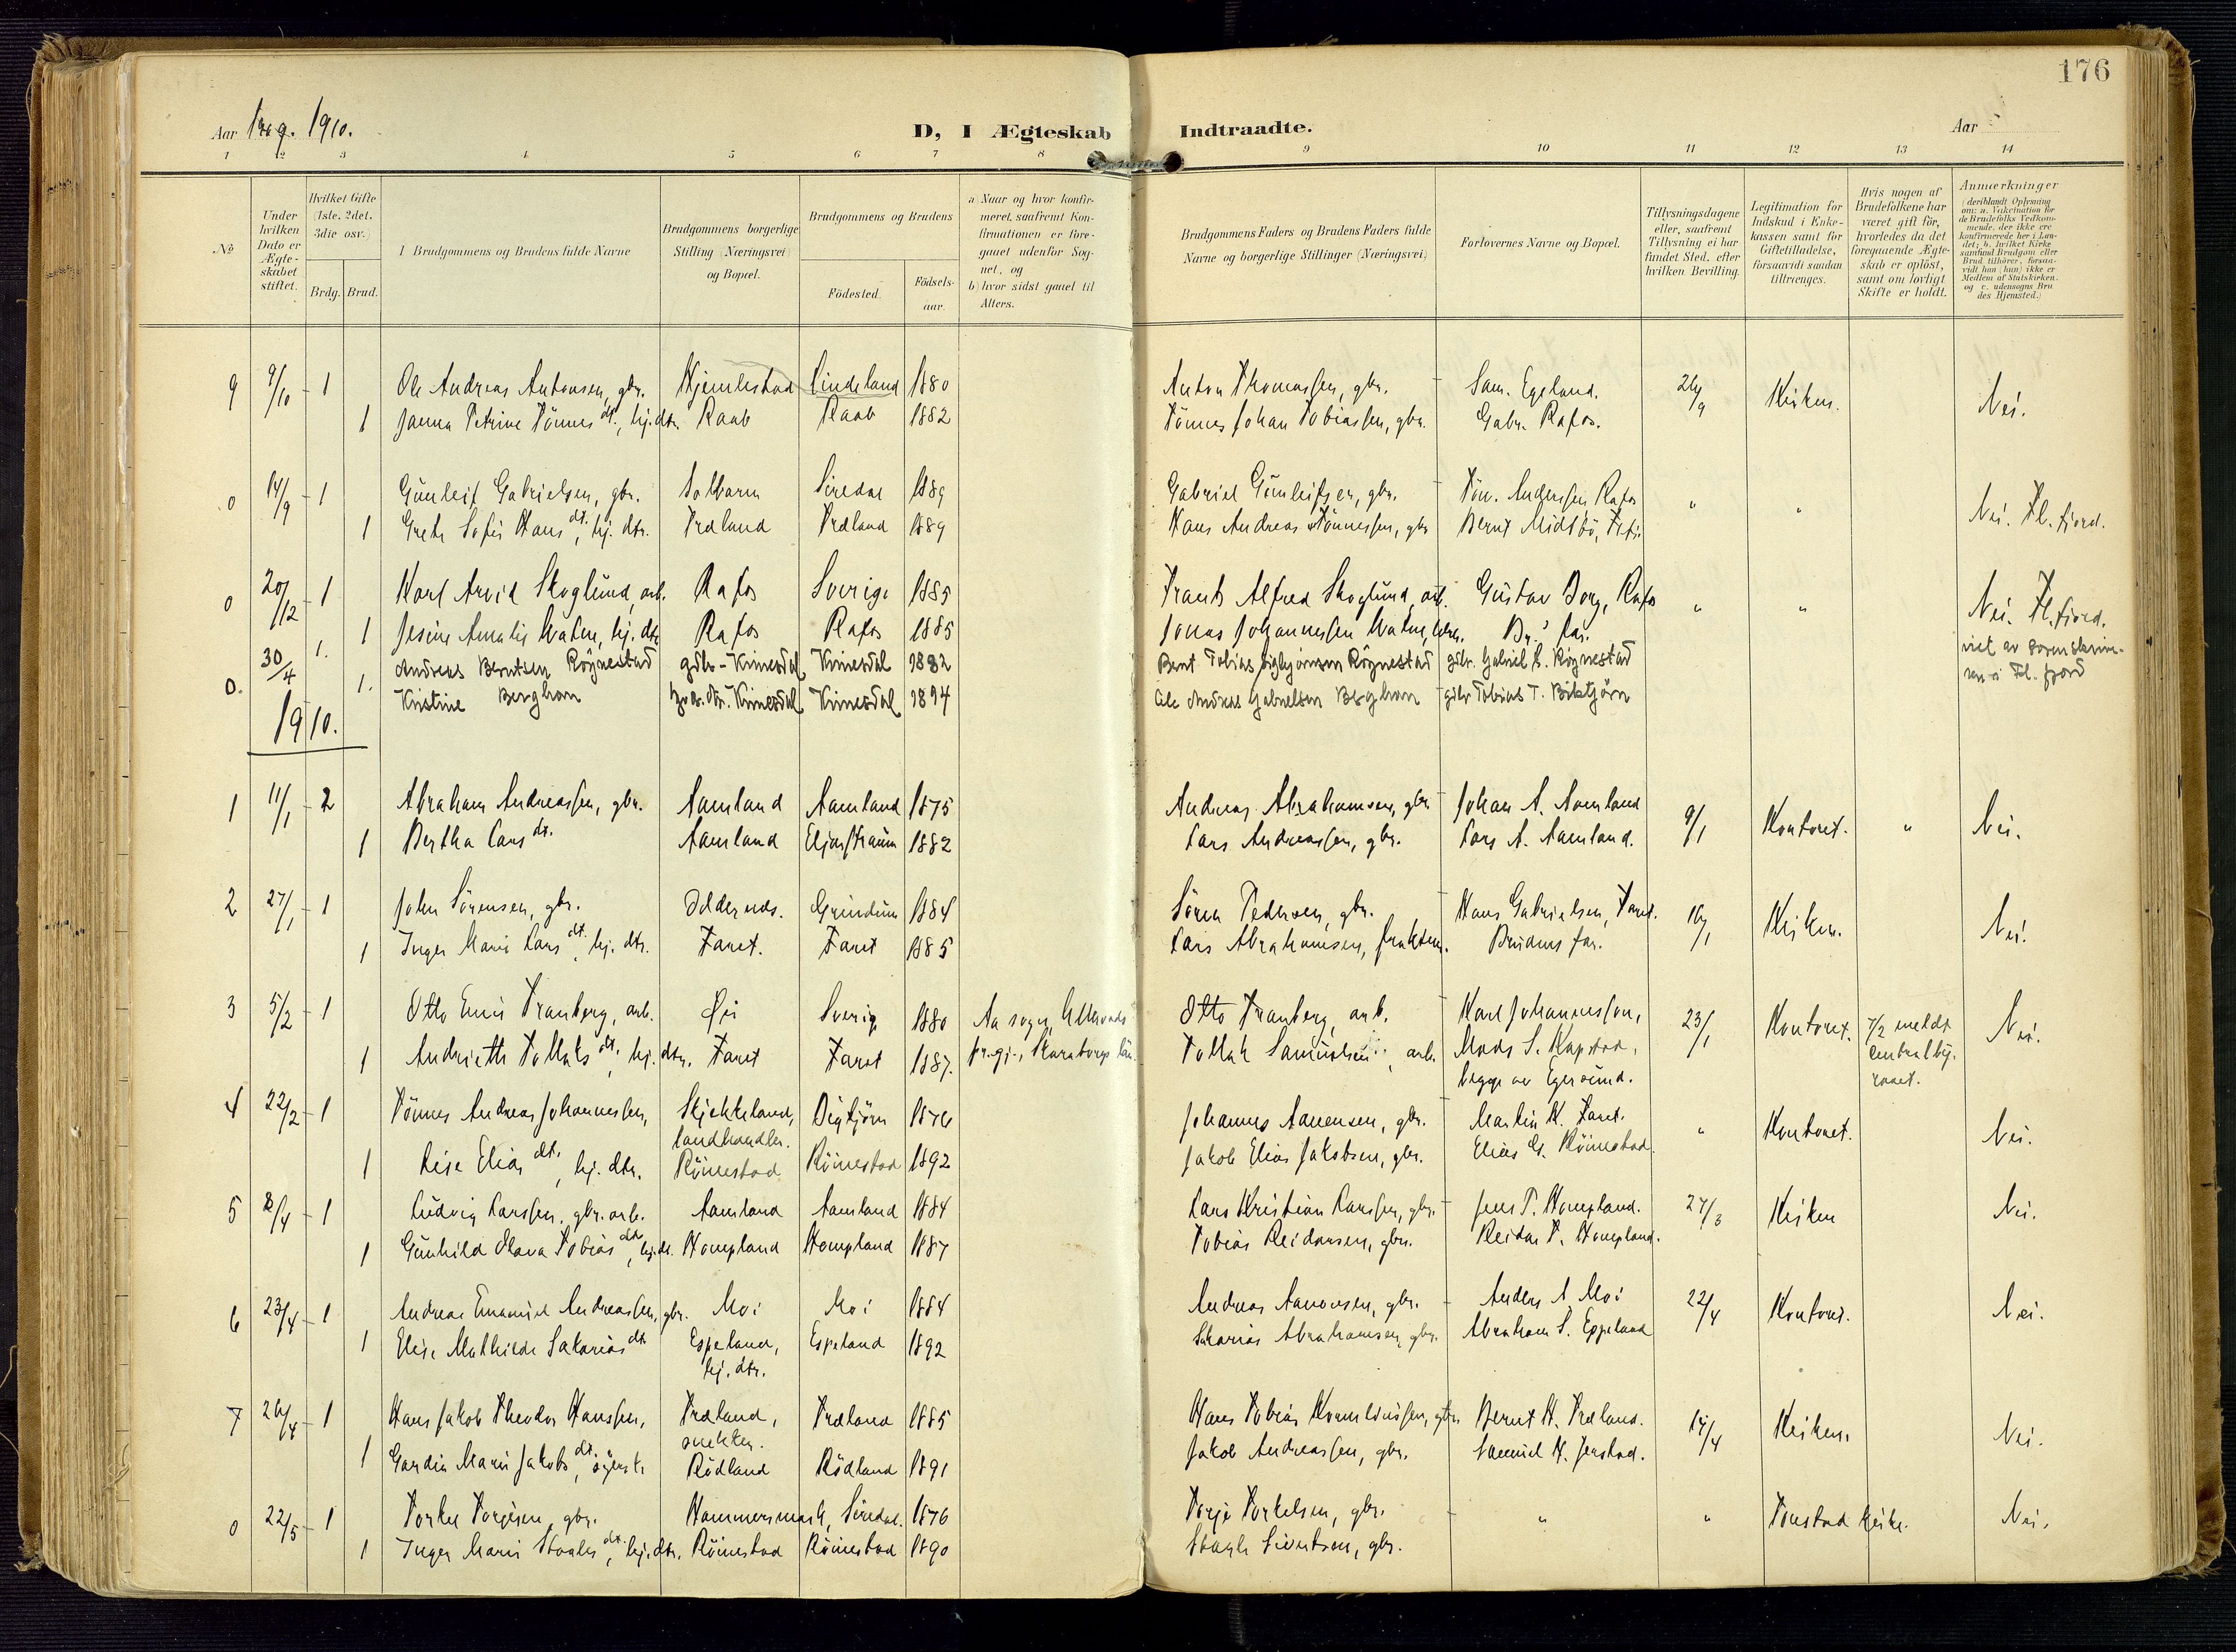 176
Aar 1909. 1910.
D, I Ægteskab Indtraadte.
Aar
1 2 3 4 5 6 7 8 9 10 11 12 13 14
No
Under hvilken Dato er Ægte-skabet stiftet.
Hvilket Gifte (1ste, 2det, 3die osv.)
Brdg. Brud.
I Brudgommens og Brudens fulde Navne
Brudgommens borgerlige Stilling (Næringsvei) og Bopæl.
Brudgommens og Brudens
Födested.
Födsels-aar.
a) Naar og hvor konfir-meret, saafremt Kon-firmationen er fore-gaaet udenfor Sog-net, og
b) hvor sidst gaaet til Alters.
Brudgommens Faders og Brudens Faders fulde Navne og borgerlige Stillinger (Næringsvei)
Forlovernes Navne og Bopæl.
Tillysningsdagene eller, saafremt Tillysning ei har fundet Sted, efter hvilken Bevilling.
Legitimation for Indskud i Enke-kassen samt for Giftetilladelse, forsaavidt saadan tiltrænges.
Hvis nogen af Brudefolkene har været gift för, hvorledes da det foregaaende Ægte-skab er oplöst, samt om lovligt Skifte er holdt.
Anmærkninger
9 9/10 1 Ole Andreas Antonsen, gbr. Hjemlestad Lindeland 1880 Anton Thomassen, gbr. Sam. Egeland. 26/9 Kirken. Nei.
1 Janna Petrine Tönnesdt., hj. dtr. Raab Raab 1882 Tönnes Johan Tobiassen, gbr. Gabr. Rafos.
0 14/9 1 Gunleif Gabrielsen, gbr. Solbarm Siredal 1889 Gabriel Gunleifsen, gbr. Tön. Anderssen, Rafos " " Nei. Fl.fjord.
1 Grete Sofie Hansdt., hj. dtr. Træland Træland 1889 Hans Andreas Tönnessen, gbr. Bernt Midtbö,
0 20/12 1 Karl Arvid Skoglund, arb. Rafos Sverige 1885 Frants Alfred Skoglund, arb. Gustav Borg, Rafos " " Nei. Fl.fjord.
1 Jesine Amalie Vatne, hj. dtr. Rafos Rafos 1885 Jonas Johannessen Vatne, Br.s far. viet av sorenskrive-
0. 30/4 1. Andreas Berntsen Röynestad gdbr. Kvinesdal Kvinesdal 1882 Bernt Tobias Sigbjørnsen Röynestad gdbr. Gabriel S. Röynestad ren i Fl. fjord
1. Kristine Berghom Kvinesdal Kvinesdal 1894 Ole Andreas Gabrielsen Berghom gdbr Tobias T. Birktjörn
1910.
1 11/1 2 Abraham Andreassen, gbr. Aamland Aamland 1875 Andreas Abrahamsen, gbr. Johan A. Aamland 9/1 Kontoret. " Nei.
1 Bertha Larsdt. Aamland Eljarstraum 1882 Lars Andreassen, gbr. Lars A. Aamland.
2 27/1 1 John Sörensen, gbr. Oddernds. Grindum 1884 Sören Pedersen, gbr. Hans Gabrielsen, Faret. 16/1 Kirken. Nei.
1 Inger Marie Larsdt., hj. dtr. Faret. Faret 1885 Lars Abrahamsen, Brudens far.
3 5/2 1 Otto Emil Tranberg, arb. Øie Sverig. 1880 Aa sogn, Otto Tranberg, arb. Karl Johannesson, 23/1 Kontoret. 7/2 meldt Nei.
1 Andriette Tollaksdt., hj. dtr. Faret Faret 1887. pr.gj., Skaraborgs län. Tollak Samuelsen, arb. Mads S. Kapstad, Centralby-
begge av Egersund. raaet.
4 22/2 1 Tönnes Andreas Johannessen, Skjekkeland, Digtjörn 1876 Johannes Aanensen, gbr. Martin H. Faret. " Kontoret. Nei.
landhandler.
1 Lise Eliasdt., hj. dtr. Röinestad Röinestad 1892 Jakob Elias Jakobsen, gbr. Elias G. Röinestad.
5 2/4 1 Ludvig Larssen, gbr. arb. Aamland Aamland 1884 Lars Kristian Larssen, gbr. Jens T. Hompland. 27/3 Kirken Nei.
1 Gunhild Olava Tobiasdt., hj. dt. Hompland Hompland 1887 Tobias Reidarsen, gbr. Reidar T. Hompland.
6 23/4 1 Andreas Emanuel Andreassen, gbr. Moi Moi 1884 Andreas Aanonsen, gbr. Anders A Moi 22/4 Kontoret. Nei.
1 Elise Mathilde Sakariasdt. Espeland, Espeland 1892 Sakarias Abrahamsen, gbr. Abraham S. Espeland
hj. dtr.
7 26/4 1 Hans Jakob Theodor Hanssen, Træland, Træland 1885 Hans Tobias Kornelinssen, gbr. Bernt H. Træland. 17/4 Kirken. Nei.
snekker.
1 Gardin Marie Jakobsdt., syerske Rödland Rödland 1891 Jakob Andreassen, gbr. Samuel H. Jerstad.
0 22/5 1 Torkel Torjesen, gbr. Hammersmark, Siredal. 1876 Torje Torkelsen, gbr. " " Tonstad Kirke. Nei.
1 Inger Marie Staalesdt., hj. dtr. Röinestad Röinestad 1890 Staale Sivertsen, gbr.